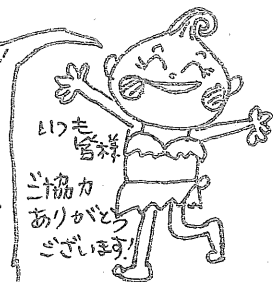 いつも
皆様
ご協力
ありがとう
ございます!